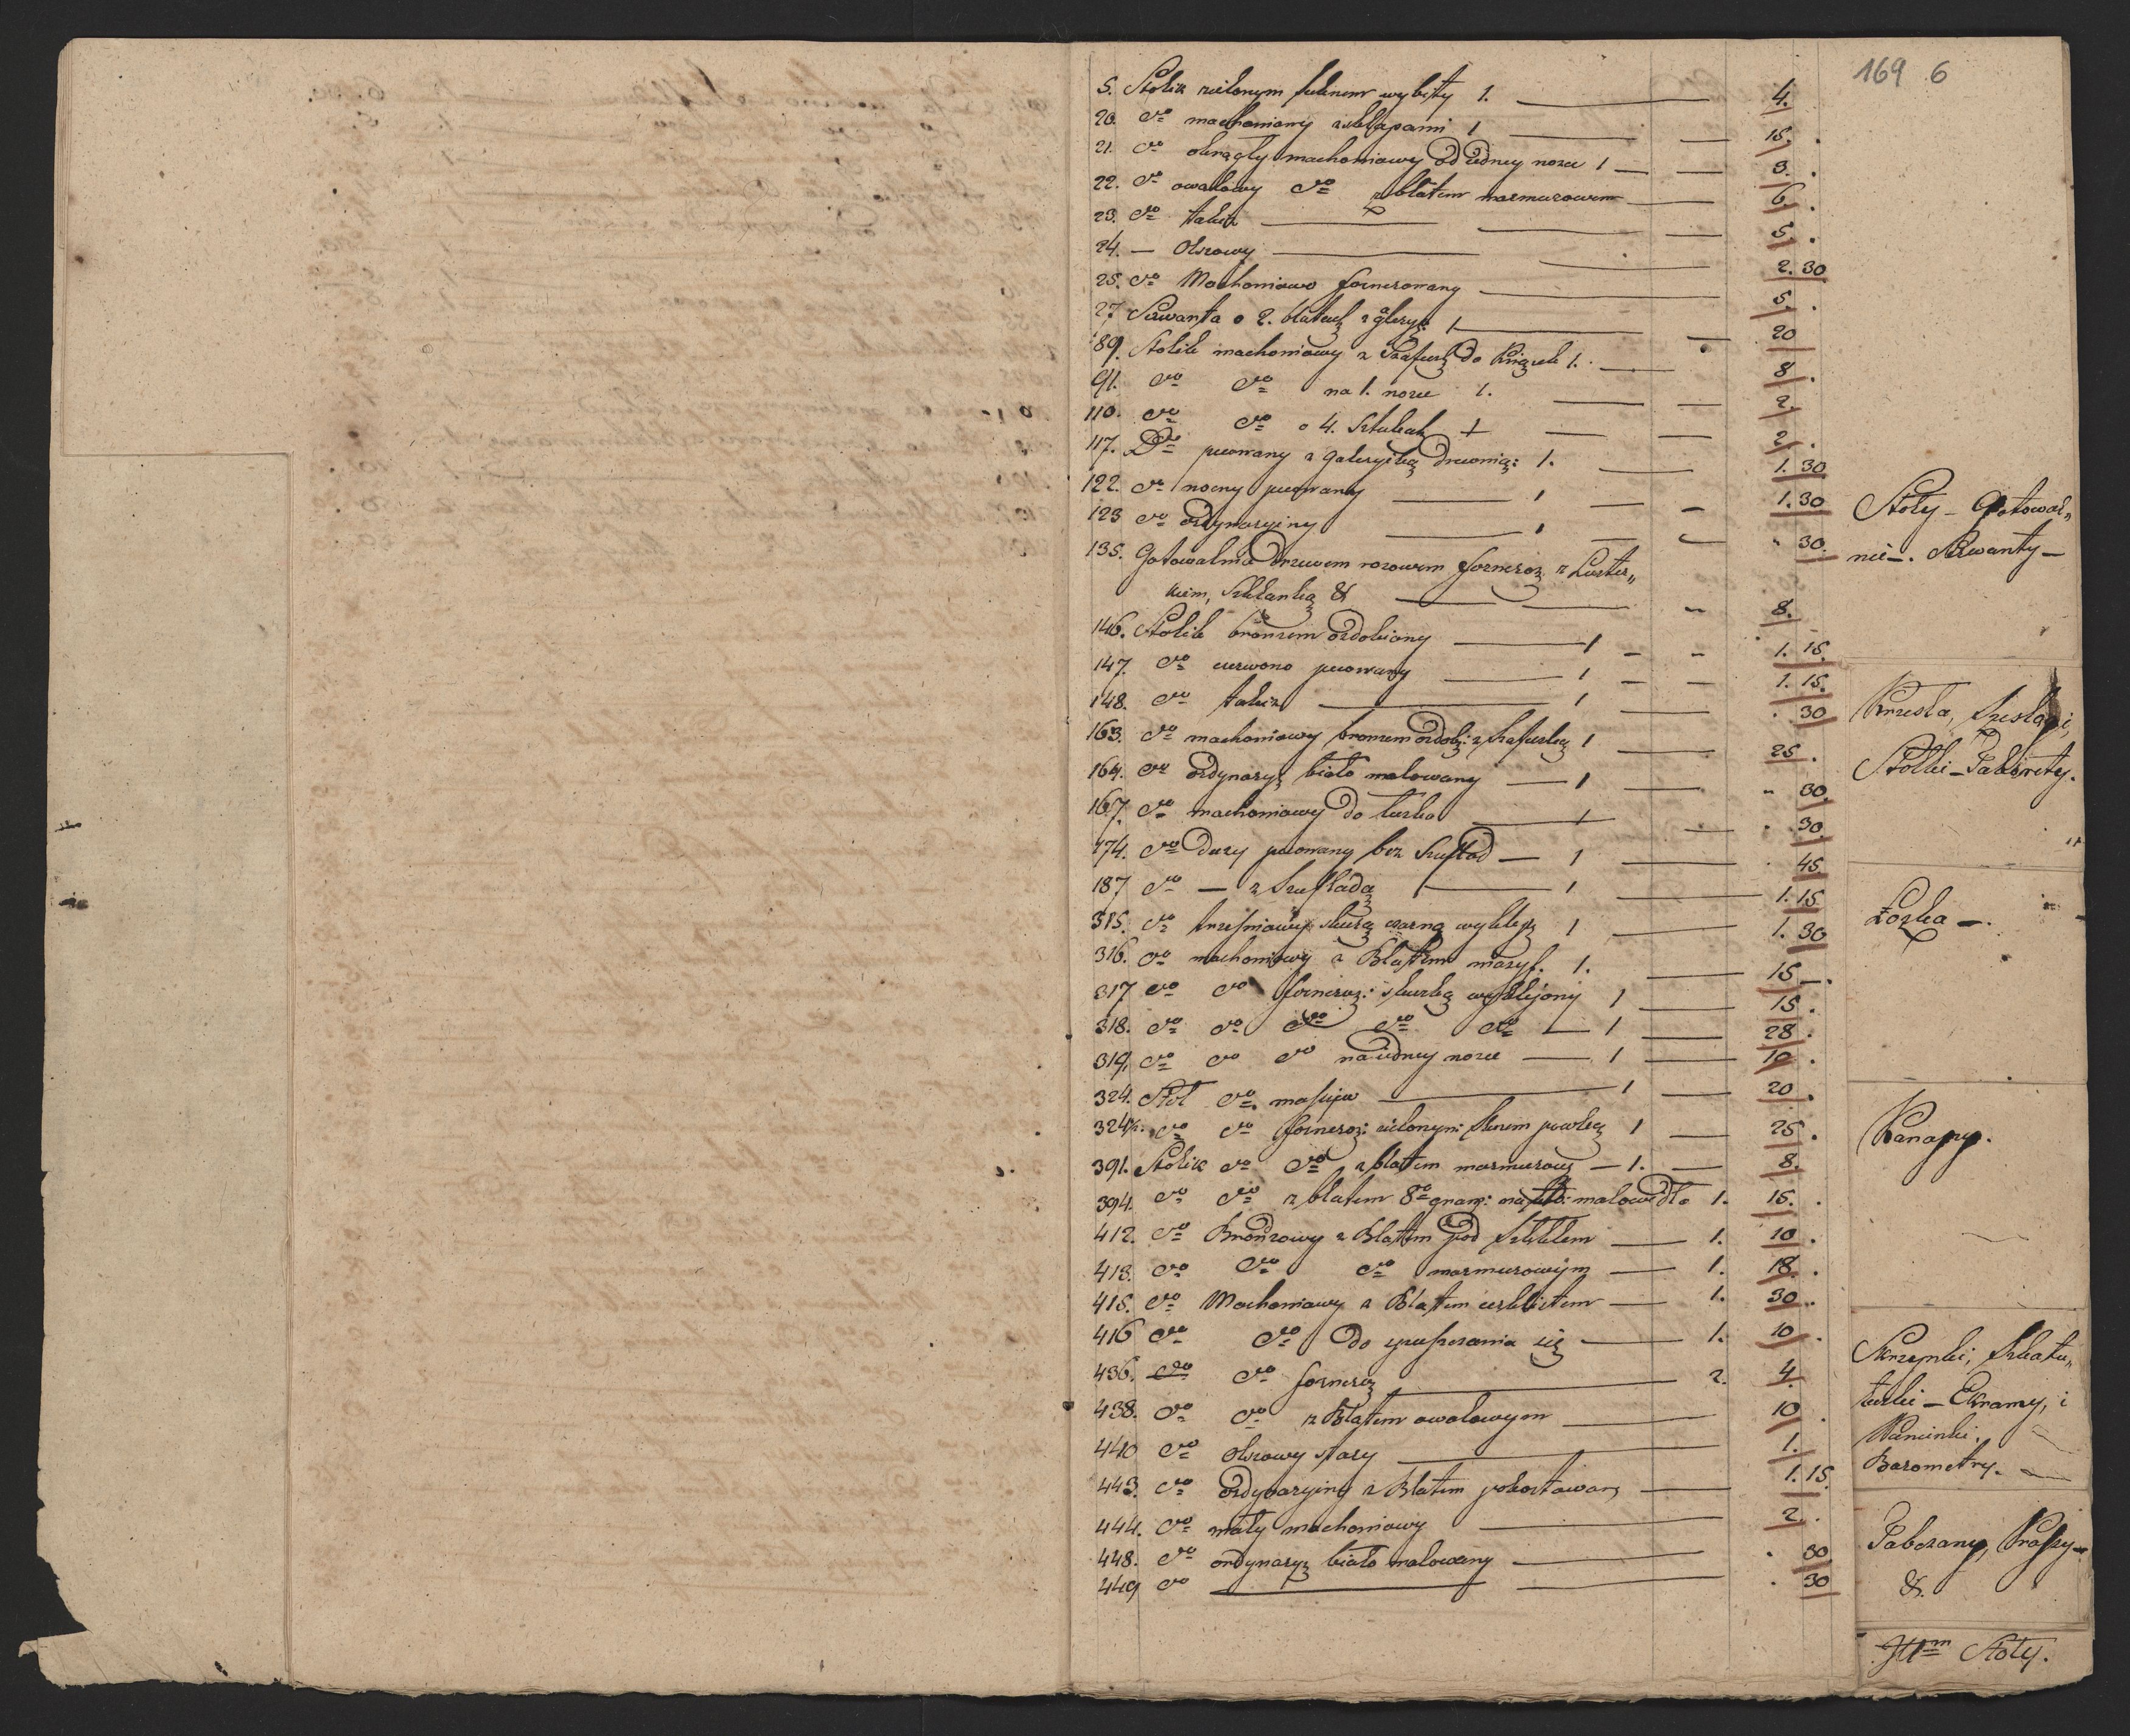 169 6
5. Stolik zielonym suknem wybity 1. — 4.
20. do machoniowy z klapami 1 — 15.
21. do okrągły machoniowy od iedney nozce 1 — 3.
22. do owalowy do z blatem marmurowem — 6.
23. do takiz — 5.
24. — Olszowy — 2.30
25. do Machoniowo fornerowany — 5.
27. Serwanta o 2. blatach z galeryą 1 — 20
89. Stolik machoniowy z Szafką do Książek 1. — 8.
91. do do na 1. nozce 1. — 2.
110. do do o 4. Sztukach 1 — 2.
117. Do pocowany z galeryiką drewnią: 1. — 1.30
122. do nocny pocowany — 1 — 1.30
123 do ordynaryiny — 1 — 30.
135. Gotowalnia drzewem rozowem fornerow z Luster„
kiem, Szklanką & — 8.
146. Stolik bronzem ozdobiony — 1 — 1.15.
147. do czerwono pocowany — 1 — 1.15.
148. do takiz — 1 — 30
163. do machoniowy bronzem ozdob: z Szafeczką 1 — 25.
164. do ordynary: biało malowany — 1 — 30.
167. do machoniowy do łuzka — 1 — 30.
174. do duzy pocowany bez Szuflad — 1 — 45.
187 do — z Szufladą — 1 — 1.15
315. do skurą czarną wykley 1 — 1.30
316. do machoniowy z Blatem masyf. 1. — 15 —.
317 do do forneroz: skurką wyklejony 1 — 15.
318. do do do do do — 1 — 28.
319. do do do na iedney nozce — 1 — 10.
324. Stół do masyjw — 1 — 20.
324½. do do forneroz: zielonym: suknem powlecz 1 — 25.
391. Stolik do do z blatem marmurowy — 1. — 8.
394. do do z blatem 8o malowidło 1. 15.
412. do Bronzowy z Blatem pod Szkłem — 1. 10.
413. do do do marmurowym — 1. 18.
415. do Machoniowy z Blatem — 1. 30.
416 do do do spuszczania się — 1. 10.
436. do do forneroz — 2. 4.
438. do do z Blatem owalowym — 10.
440 do olszowy stary — 1.
443. do ordynaryiny z Blatem pokostowany — 1.15.
444. do mały machoniowy — 2.
448. do ordynary: biało malowany — 30
449 do — 30
Stoły – Gotowal„
nie –. Serwanty –
Krzesła, Szeslągi,
Stołki – Taborety.
Łozka –.
Kanapy.
Skrzynki, Szkatu„
łecki – Ekrany, i
Kominki.
Barometry.
Taborany, Prassy –
&.
Stoły.